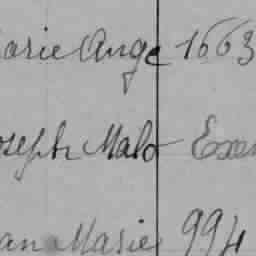 arie Ange 1663
oseph Malo Exem
an Marie 994